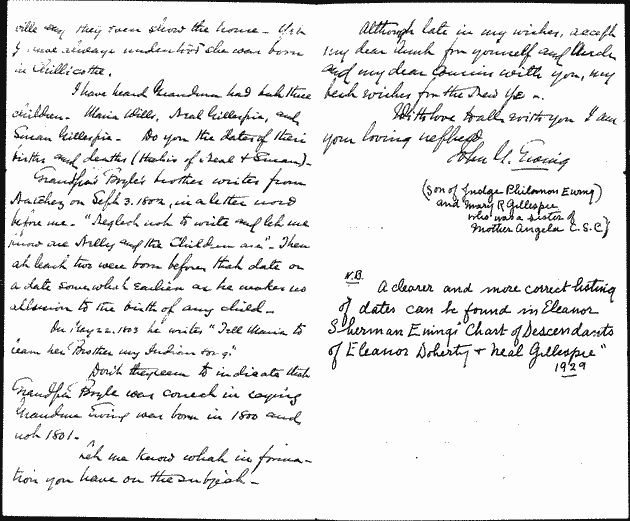 ville say they even show the house - Yet
I have always understood she was born
in Chillicothe.
I have heard Grandma had but three
children - Maria Wills, Neal Gillespie, and
Susan Gillespie - Do you the dates of their
births and deaths (that is of Neal & Susan)-
Grandpa's Boyle's brother writes from
Natchez on Sept 3. 1802, in a letter now
before me - "Neglect not to write and let me
know are Nelly and the Children are". Then
at least two were born before that date on
a date somewhat earlier as he makes no
allusion to the birth of any child -
On May 22. 1803 he writes "Tell Maria to
learn her Brother my Indian song".
Don't they seem to indicate that
Grandpa Boyle was correct in saying
Grandma Ewing was born in 1800 and
not 1801 -
Let me know what in forma-
tion you have on the subject -
Although late in my wishes, accept
my dear Aunt for yourself and Uncle
and my dear Cousins with you, my
best wishes for the New Ye -
With love to all with you I am
your loving nephew
John G. Ewing
(Son of Judge Philemon Ewing)
and Mary R Gillespie
who was a sister of
Mother Angela C.S.C)
N.B.
A clearer and more correct listing
of dates can be found in Eleanor
Sherman Ewing's "Chart of Descendants
of Eleanor Doherty & Neal Gillespie"
1929